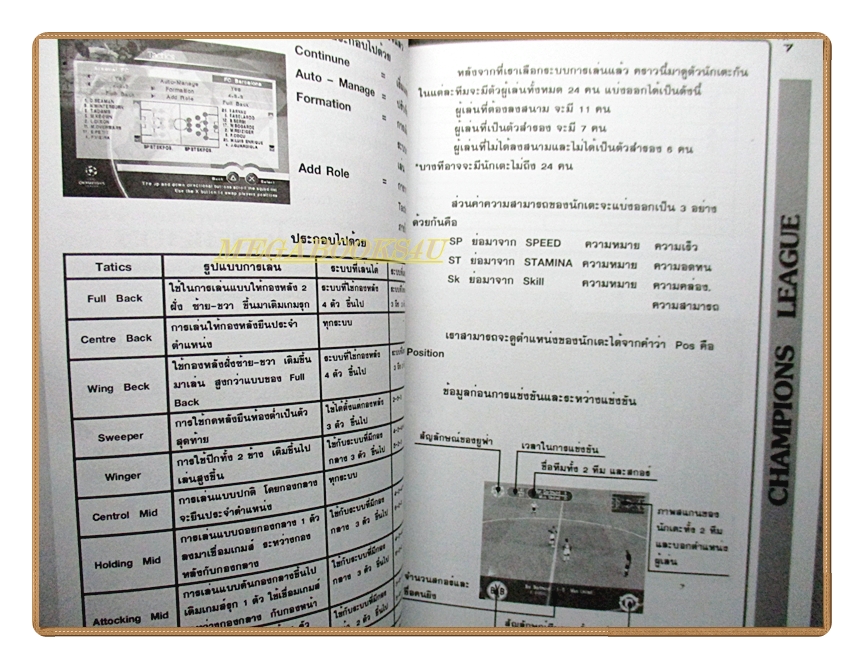 ประกอบไปด้วย
Continune =
Auto - Manage =
Formation =
Add Role =
Auto-Manage
Formation
Add Role
FC Barcelona
Yes
Full Back
Back
Select
MEGABOOKS4U
ประกอบไปด้วย
Tatics รูปแบบการเล่น ระบบที่เล่นได้
Full Back ใช้ในการเล่นแบบให้กองหลัง 2 ระบบที่ใช้กองหลัง
ฝั่ง ซ้าย-ขวา ขึ้นมาเติมเกมรุก 4 ตัว ขึ้นไป
Centre Back การเล่นให้กองหลังยืนประจำ ทุกระบบ
ตำแหน่ง
Wing Beck ใช้กองหลังฝั่งซ้าย-ขวา เติมขึ้น ระบบที่ใช้กองหลัง
มาเล่น สูงกว่าแบบของ Full 4 ตัว ขึ้นไป
Back
Sweeper การใช้กดหลังยืนห้องต่ำเป็นตัว ใช้ได้ตั้งแต่กองหลัง
สุดท้าย 3 ตัว ขึ้นไป
Winger การใช้ปีกทั้ง 2 ข้าง เติมขึ้นไป ใช้กับระบบที่มีกอง
เล่นสูงขึ้น กลาง 3 ตัว ขึ้นไป
Centrol Mid การเล่นแบบปกติ โดยกองกลาง ทุกระบบ
จะยืนประจำตำแหน่ง
Holding Mid การเล่นแบบถอยกองกลาง 1 ตัว ใช้กับระบบที่มีกอง
ลงมาเชื่อมเกมส์ ระหว่างกอง กลาง 3 ตัว ขึ้นไป
หลังกับกองกลาง
Attocking Mid การเล่นแบบดันกองกลางขึ้นไป ใช้กับระบบที่มีกอง
เติมเกมส์รุก 1 ตัว ใช้เชื่อมเกมส์ กลาง 3 ตัว ขึ้นไป
ระหว่างกองกลาง กับกองหน้า
7
หลังจากที่เราเลือกระบบการเล่นแล้ว คราวนี้มาดูตัวนักเตะกัน
ในแต่ละทีมจะมีตัวผู้เล่นทั้งหมด 24 คน แบ่งออกได้เป็นดังนี้
ผู้เล่นที่ต้องลงสนาม จะมี 11 คน
ผู้เล่นที่เป็นตัวสำรอง จะมี 7 คน
ผู้เล่นที่ไม่ได้ลงสนามและไม่ได้เป็นตัวสำรอง 6 คน
*บางทีอาจจะมีนักเตะไม่ถึง 24 คน
ส่วนค่าความสามารถของนักเตะจะแบ่งออกเป็น 3 อย่าง
ด้วยกันคือ
SP ย่อมาจาก SPEED ความหมาย ความเร็ว
ST ย่อมาจาก STAMINA ความหมาย ความอดทน
Sk ย่อมาจาก Skill ความหมาย ความคล่อง,
ความสามารถ
เราสามารถจะดูตำแหน่งของนักเตะได้จากคำว่า Pos คือ
Position
ข้อมูลก่อนการแข่งขันและระหว่างแข่งขัน
สัญลักษณ์ของยูฟ่า
เวลาในการแข่งขัน
ชื่อทีมทั้ง 2 ทีม และสกอร์
ภาพสแกนของ
นักเตะทั้ง 2 ทีม
และบอกตำแหน่ง
ผู้เล่น
จำนวนสกอร์และ
ชื่อคนยิง
CHAMPIONS LEAGUE